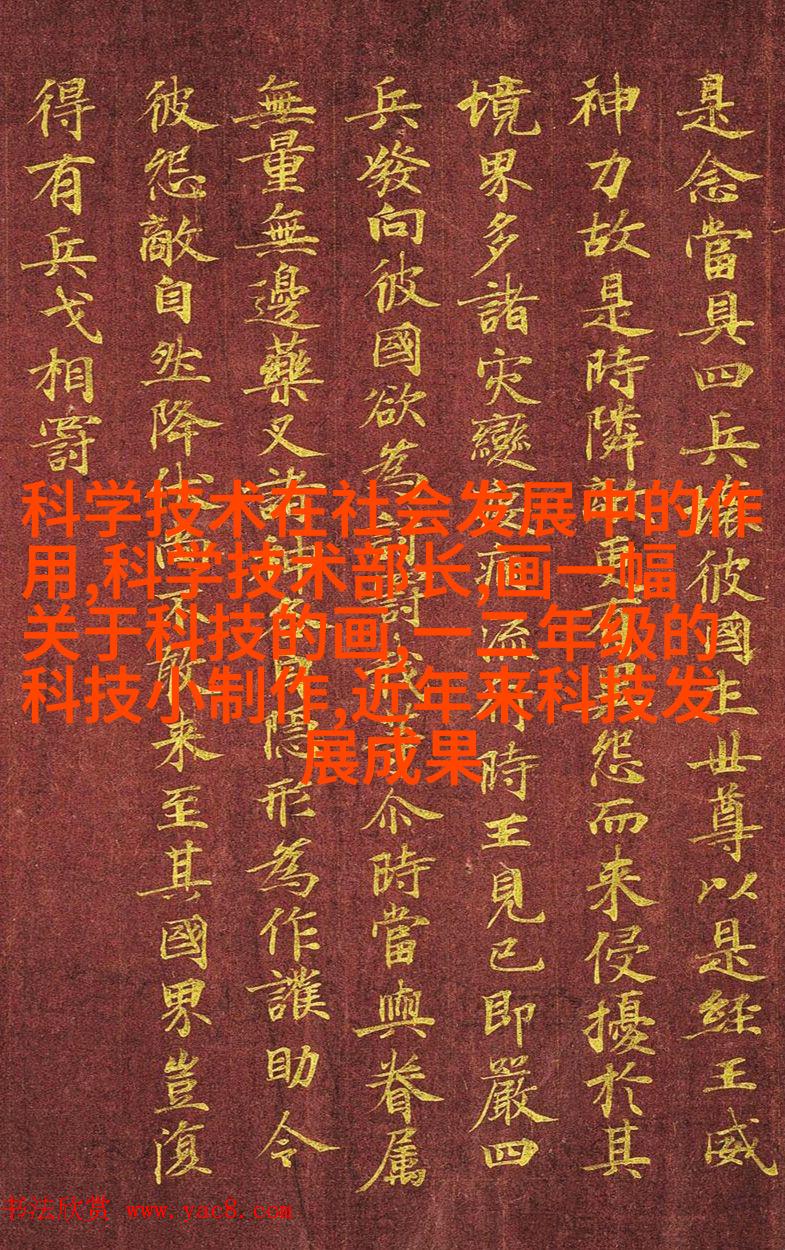 是念當具四兵壞彼國土世尊以是經王威
神力故是時隣敵更有異怨而来侵擾於其
境界多諸灾變疫病流行時王見已即嚴四
兵發向彼國欲為討罰我等尒時當與眷属
無量無邊藥叉諸神各自隱形為作護助令
彼怨敵自然降伏尚不敢来至其國界豈復
得有兵戈相罸
科学技术在社会发展中的作
用,科学技术部长,画一幅
关于科技的画,一二年级的
科技小制作,近年来科技发
展成果
书法欣赏 www.yac8.com